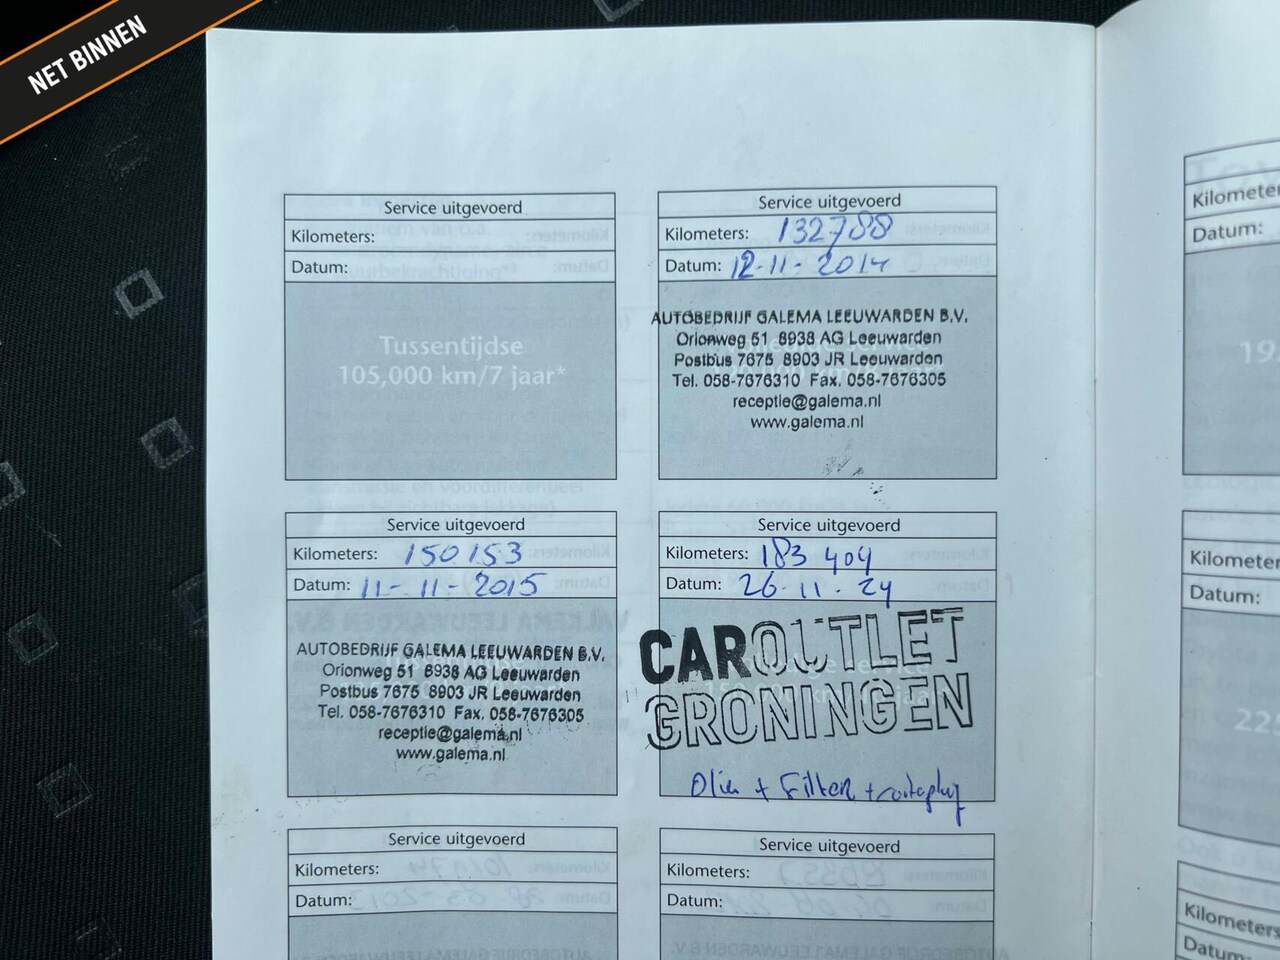 NET BINNEN
Service uitgevoerd
Kilometers:
Datum:
Tussentijdse
105,000 km/7 jaar*
Service uitgevoerd
Kilometers: 132788
Datum: 12-11-2014
AUTOBEDRIJF GALEMA LEEUWARDEN B.V.
Orionweg 51 8938 AG Leeuwarden
Postbus 7675 8903 JR Leeuwarden
Tel. 058-7676310 Fax. 058-7676305
receptie@galema.nl
www.galema.nl
Service uitgevoerd
Kilometers: 150153
Datum: 11-11-2015
AUTOBEDRIJF GALEMA LEEUWARDEN B.V.
Orionweg 51 8938 AG Leeuwarden
Postbus 7675 8903 JR Leeuwarden
Tel. 058-7676310 Fax. 058-7676305
receptie@galema.nl
www.galema.nl
Service uitgevoerd
Kilometers: 183 404
Datum: 26-11-24
CAROUTLET
GRONINGEN
Olie + Filter +
Service uitgevoerd
Kilometers:
Datum:
Service uitgevoerd
Kilometers:
Datum:
Kilometer
Datum:
19
Kilometer
Datum:
225
Kilometers
Datum: